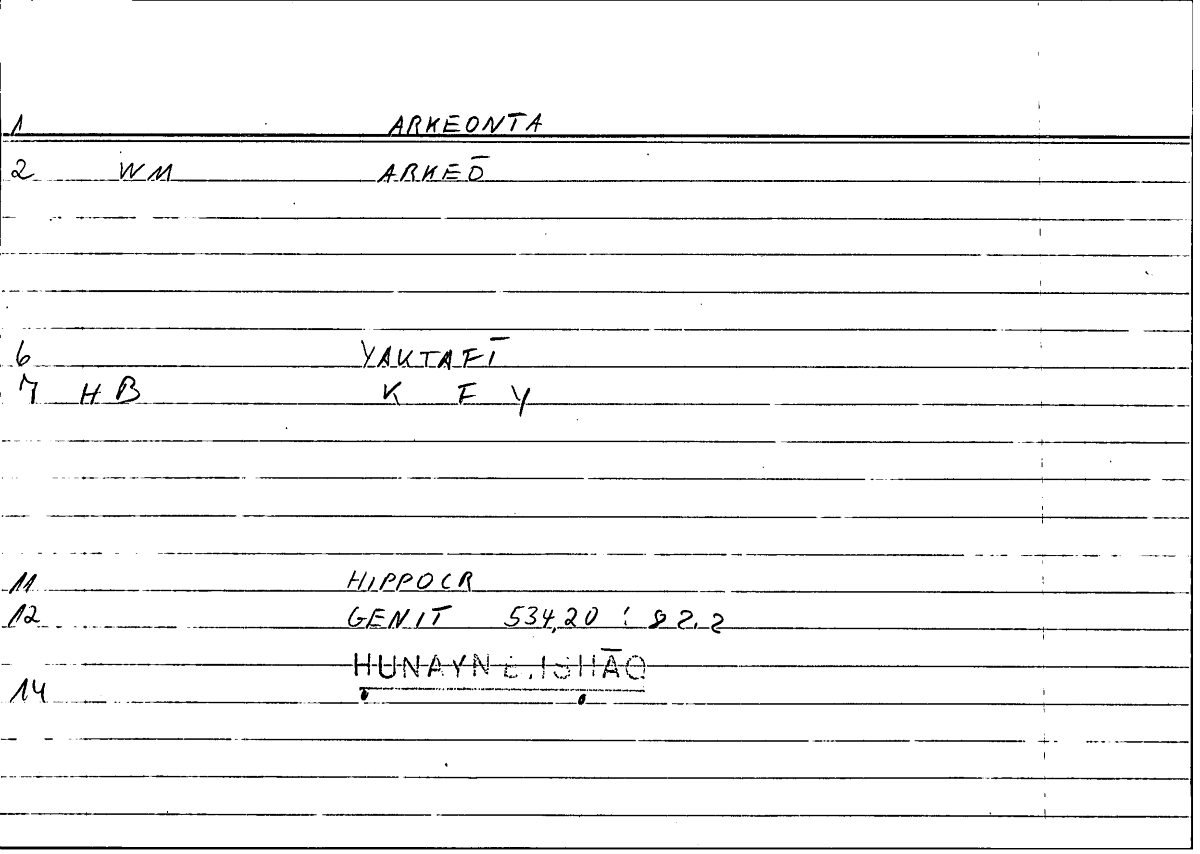 1 ARKEONTA
2 WM ARKEŌ
6 YAKTAFĪ
7 HB K F Y
11 HIPPOCR
12 GENIT 534,20 : 82.2
HUNAYN B. ISHĀQ
14